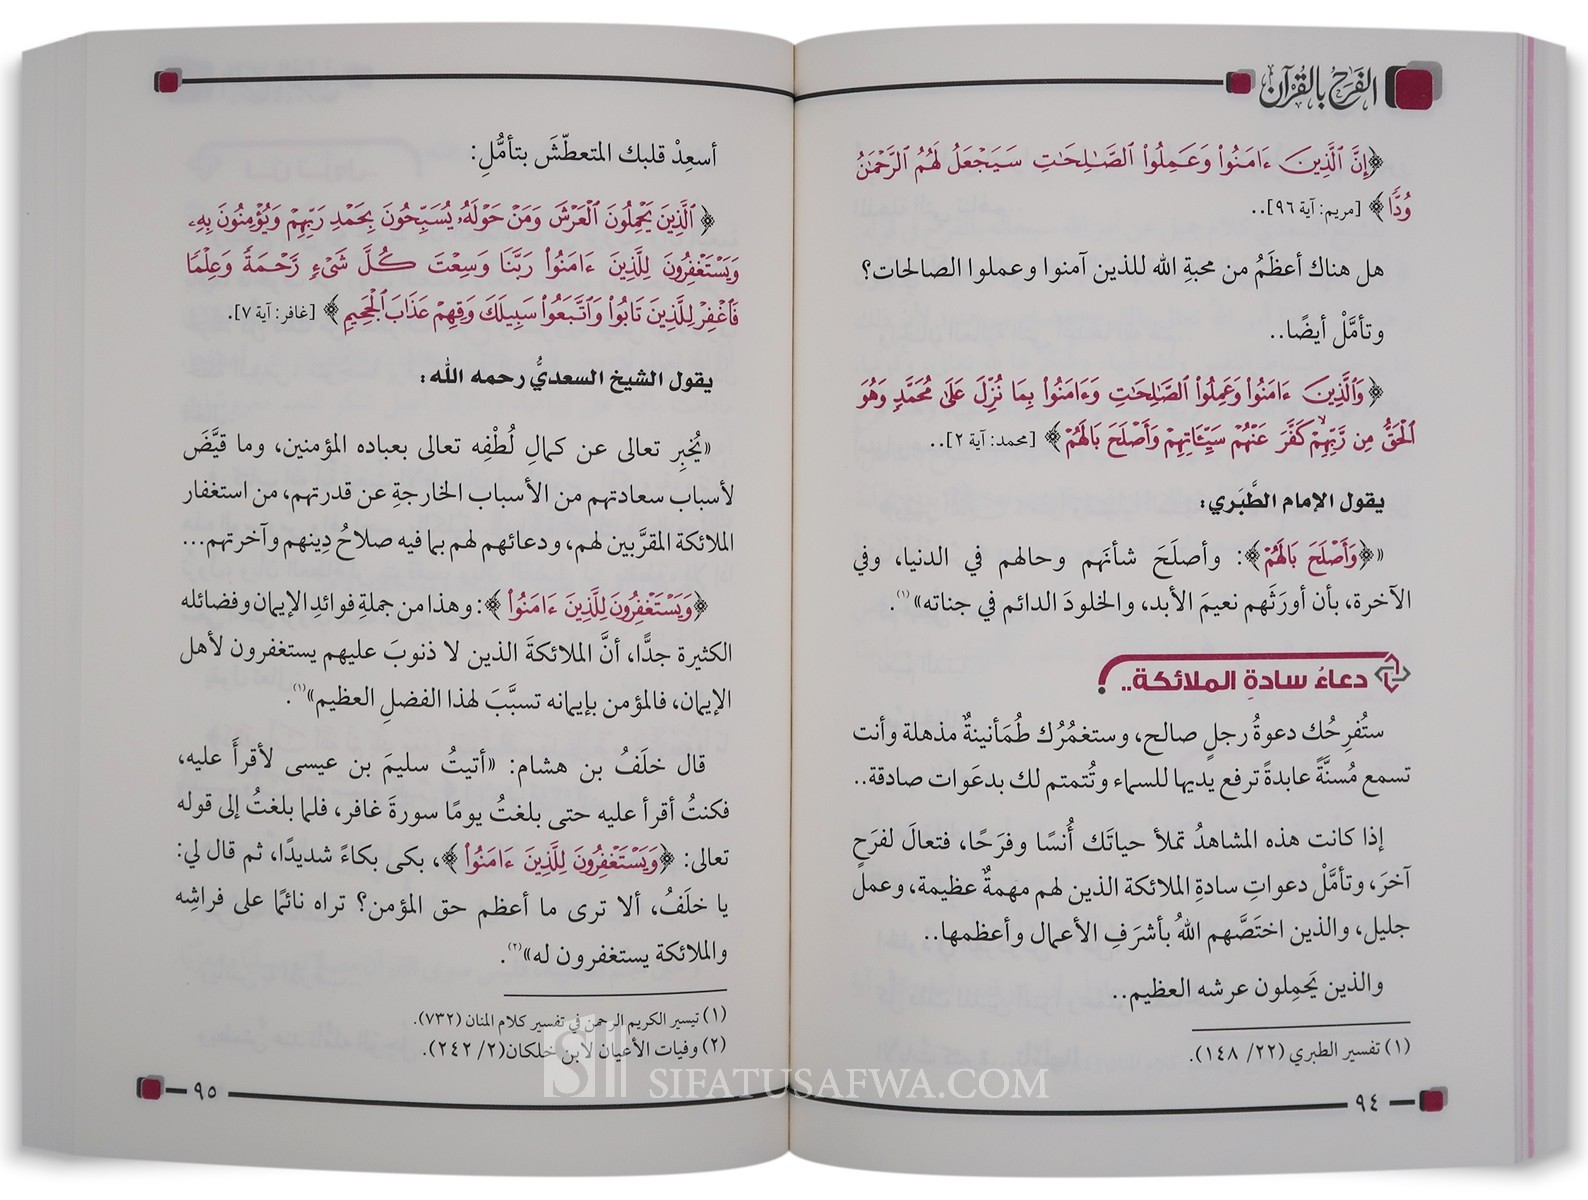 الفَرَحُ بالقُرآن
﴿إِنَّ ٱلَّذِينَ ءَامَنُوا۟ وَعَمِلُوا۟ ٱلصَّـٰلِحَـٰتِ سَيَجْعَلُ لَهُمُ ٱلرَّحْمَـٰنُ
وُدًّا﴾ [مريم: آية ٩٦]..
هل هناك أعظَمُ من محبةِ الله للذين آمنوا وعملوا الصالحات؟
وتأمَّلْ أيضًا..
﴿وَٱلَّذِينَ ءَامَنُوا۟ وَعَمِلُوا۟ ٱلصَّـٰلِحَـٰتِ وَءَامَنُوا۟ بِمَا نُزِّلَ عَلَىٰ مُحَمَّدٍ وَهُوَ
ٱلْحَقُّ مِن رَّبِّهِمْ كَفَّرَ عَنْهُمْ سَيِّـَٔاتِهِمْ وَأَصْلَحَ بَالَهُمْ﴾ [محمد: آية ٢]..
يقول الإمام الطَّبَري:
«﴿وَأَصْلَحَ بَالَهُمْ﴾: وأصلَحَ شأنَهم وحالهم في الدنيا، وفي
الآخرة، بأن أورَثَهم نعيمَ الأبد، والخلودَ الدائم في جناته»(١).
دعاءُ سادةِ الملائكة..
ستُفرِحُك دعوةُ رجلٍ صالح، وستغمُرُك طُمَأنينةٌ مذهلة وأنت
تسمع مُسنَّةً عابدةً ترفع يديها للسماء وتُتمتم لك بدعَوات صادقة..
إذا كانت هذه المشاهدُ تملأ حياتَك أُنسًا وفرَحًا، فتعالَ لفرَحٍ
آخرَ، وتأمَّلْ دعواتِ سادةِ الملائكة الذين لهم مهمةٌ عظيمة، وعمل
جليل، والذين اختَصَّهم اللهُ بأشرَفِ الأعمال وأعظمها..
والذين يَحمِلون عرشه العظيم..
(١) تفسير الطبري (٢٢/ ١٤٨).
٩٤
أسعِدْ قلبك المتعطّشَ بتأمُّلِ:
﴿ٱلَّذِينَ يَحْمِلُونَ ٱلْعَرْشَ وَمَنْ حَوْلَهُۥ يُسَبِّحُونَ بِحَمْدِ رَبِّهِمْ وَيُؤْمِنُونَ بِهِۦ
وَيَسْتَغْفِرُونَ لِلَّذِينَ ءَامَنُوا۟ رَبَّنَا وَسِعْتَ كُلَّ شَىْءٍ رَّحْمَةً وَعِلْمًا
فَٱغْفِرْ لِلَّذِينَ تَابُوا۟ وَٱتَّبَعُوا۟ سَبِيلَكَ وَقِهِمْ عَذَابَ ٱلْجَحِيمِ﴾ [غافر: آية ٧].
يقول الشيخ السعديُّ رحمه الله:
«يُخبِر تعالى عن كمالِ لُطْفِه تعالى بعباده المؤمنين، وما قيَّضَ
لأسباب سعادتهم من الأسباب الخارجةِ عن قدرتهم، من استغفار
الملائكة المقرَّبين لهم، ودعائهم لهم بما فيه صلاحُ دِينهم وآخرتهم...
﴿وَيَسْتَغْفِرُونَ لِلَّذِينَ ءَامَنُوا۟﴾: وهذا من جملةِ فوائدِ الإيمان وفضائله
الكثيرة جدًّا، أنَّ الملائكةَ الذين لا ذنوبَ عليهم يستغفرون لأهل
الإيمان، فالمؤمن بإيمانه تسبَّبَ لهذا الفضلِ العظيم»(١).
قال خلَفُ بن هشام: «أتيتُ سليمَ بن عيسى لأقرأَ عليه،
فكنتُ أقرأ عليه حتى بلغتُ يومًا سورةَ غافر، فلما بلغتُ إلى قوله
تعالى: ﴿وَيَسْتَغْفِرُونَ لِلَّذِينَ ءَامَنُوا۟﴾، بكى بكاءً شديدًا، ثم قال لي:
يا خلَفُ، ألا ترى ما أعظم حق المؤمن؟ تراه نائمًا على فراشِه
والملائكة يستغفرون له»(٢).
(١) تيسير الكريم الرحمن في تفسير كلام المنان (٧٣٢).
(٢) وفيات الأعيان لابن خلكان(٢/ ٢٤٢).
٩٥
SIFATUSAFWA.COM